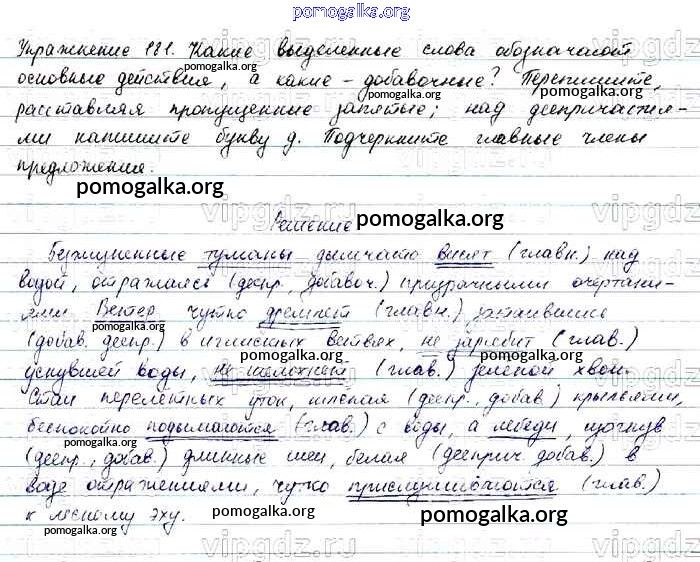 pomogalka.org
Упражнение 181. Какие выделенные слова обозначают
основные действия, а какие – добавочные? Перепишите,
pomogalka.org pomogalka.org
расставляя пропущенные запятые; над деепричастия-
ми напишите букву д. Подчеркните главные члены
предложения.
pomogalka.org
Решение pomogalka.org
Безжизненные туманы дымчато висят (главн.) над
водой, отражаясь (деепр., добавоч.) призрачными очертани-
ями. Ветер чутко дремлет (главн.) затаившись
pomogalka.org pomogalka.org
(добав. деепр.) в иглистых ветвях, не зарябит (глав.)
pomogalka.org
уснувшей воды, не шелохнет (глав.) зеленой хвои.
Стаи перелетных уток, шлепая (деепр., добав.) крыльями,
pomogalka.org
беспокойно подымаются (глав.) с воды, а лебеди, изогнув
pomogalka.org
(деепр., добав.) длинные шеи, белая (дееприч. добав.) в
воде отражениями, чутко прислушиваются (глав.)
к лесному эху. pomogalka.org pomogalka.org
vipgdz.ru